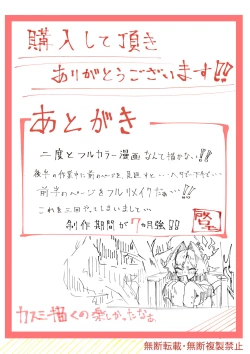 購入して頂き
ありがとうございます!!
あとがき
二度とフルカラー漫画なんて描かない!!
後半の作業中に前のページを見返すと…ヘタでヘタで…
前半のページをフルリメイクだぁ…!!
これを三回やってしまいまして…
制作期間が7ヵ月強!!
カスミ描くの楽しかったなぁ
無断転載・無断複製禁止